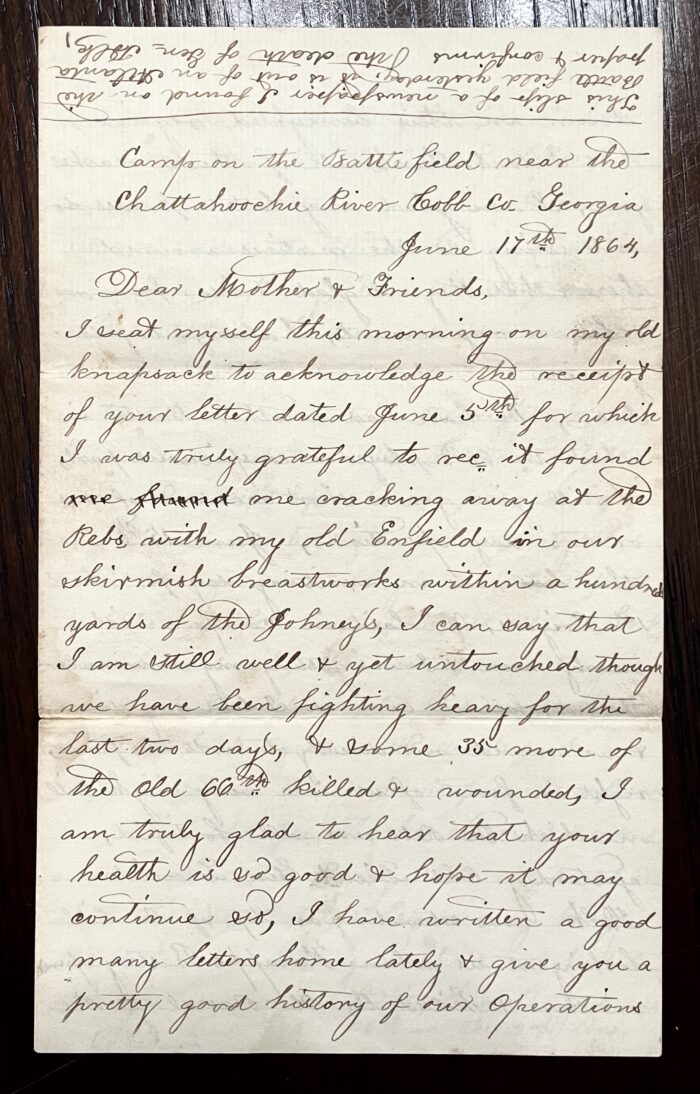 This slip of a newspaper I found on the
Battle field yesterday, it is out of an Atlanta
paper & confirms the death of Gen. Polk,
Camp on the Battlefield near the
Chattahoochie River Cobb Co. Georgia
June 17th 1864,
Dear Mother & Friends,
I seat myself this morning on my old
knapsack to acknowledge the receipt
of your letter dated June 5th for which
I was truly grateful to rec. it found
me found me cracking away at the
Rebs, with my old Enfield in our
skirmish breastworks within a hundred
yards of the Johney's, I can say that
I am still well & yet untouched though
we have been fighting heavy for the
last two days, & some 35 more of
the Old 66th killed & wounded, I
am truly glad to hear that your
health is so good & hope it may
continue so, I have written a good
many letters home lately & give you a
pretty good history of our Operations